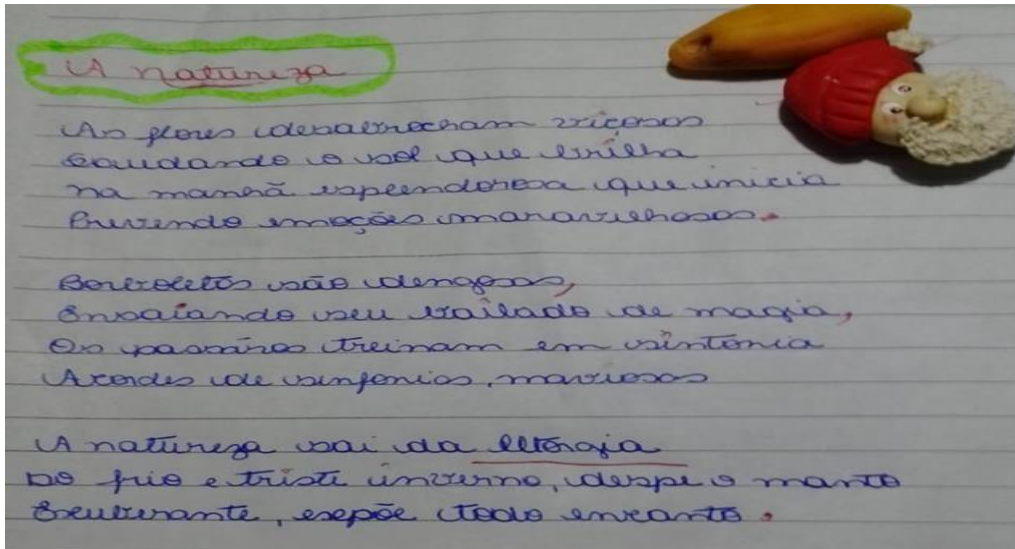 A natureza
As flores desabrocham viçosas
Saudando o sol que brilha
na manhã esplendorosa que inicia
Prevendo emoções maravilhosas.
Borboletas são dengosas,
Ensaiando seu bailado de magia,
Os passáros treinam em sintonia
Acordes de sinfonias, maviosas
A natureza sai da letargia
Do frio e triste inverno, despe o manto
Exuberante, expõe todo encanto.